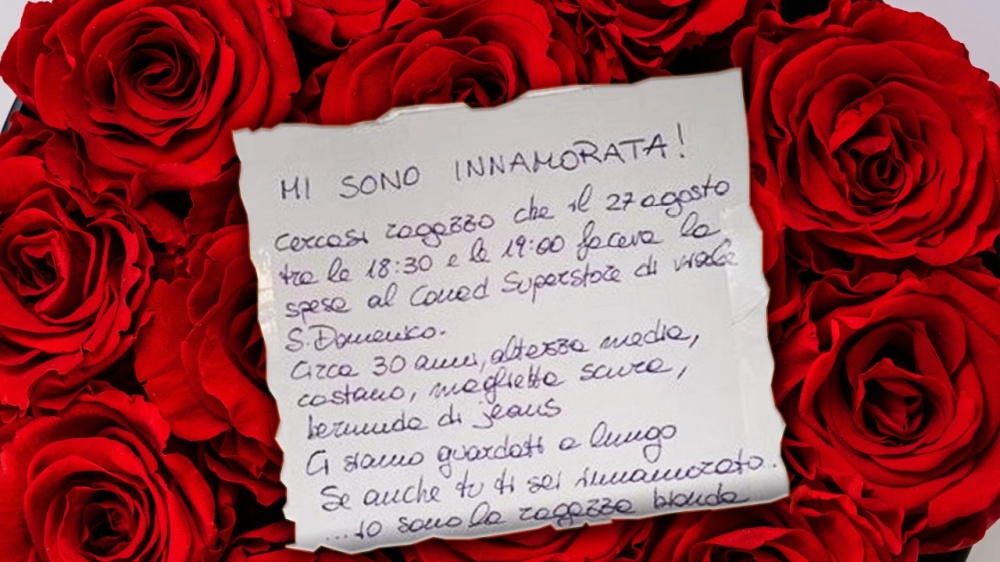 MI SONO INNAMORATA!
Cercasi ragazzo che il 27 agosto
tra le 18:30 e le 19:00 faceva la
spesa al Conad Superstore di viale
S. Domenico.
Circa 30 anni, altezza media,
castano, maglietta scura,
bermuda di jeans
Ci siamo guardati a lungo
Se anche tu ti sei innamorato..
...io sono la ragazza bionda